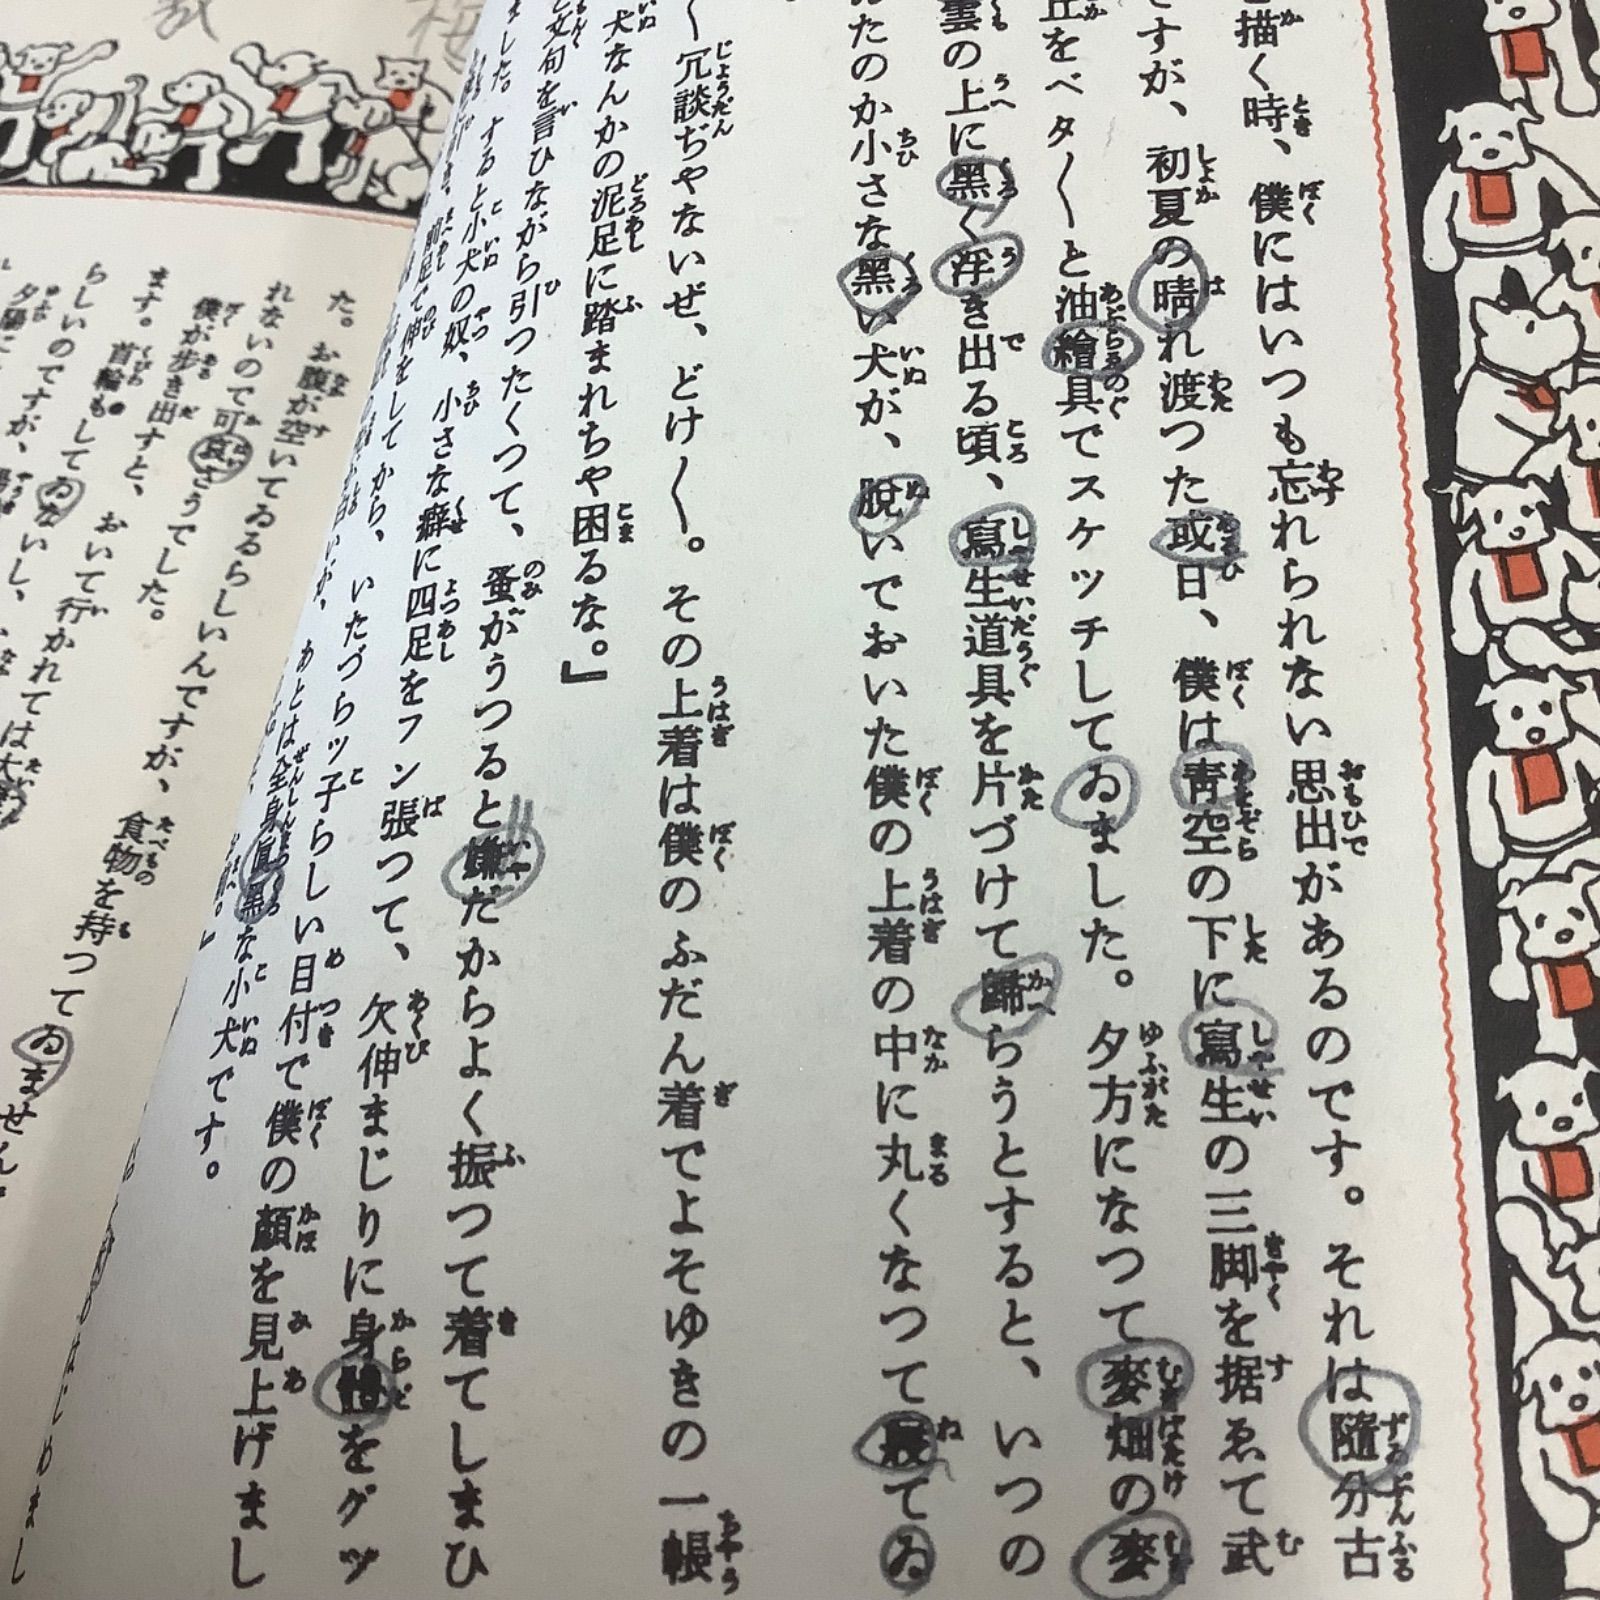 描く時、僕にはいつも忘れられない思出があるのです。それは隨分古
ですが、初夏の晴れ渡つた或日、僕は青空の下に寫生の三脚を据ゑて武
丘をベタ〳〵と油繪具でスケッチしてゐました。夕方になつて麥畑の麥
雲の上に黑く浮き出る頃、寫生道具を片づけて歸らうとすると、いつの
たのか小さな黑い犬が、脫いでおいた僕の上着の中に丸くなつて寢てゐ
冗談ぢやないぜ、どけ〳〵。その上着は僕のふだん着でよそゆきの一帳
犬なんかの泥足に踏まれちや困るな。』
文句を言ひながら引つたくつて、蚤がうつると嫌だからよく振つて着てしまひ
ました。すると小犬の奴、小さな癖に四足をフン張つて、欠伸まじりに身體をグッ
伸をしてから、いたづらッ子らしい目付で僕の顏を見上げまし
が、あとは全身眞黑な小犬です。
た。お腹が空いてゐるらしいんですが、食物を持つてゐません。
れないので可哀さうでした。
僕が歩き出すと、おいて行かれては大
ます。首輪もしてゐないし、
らしいのですが、
夕陽に